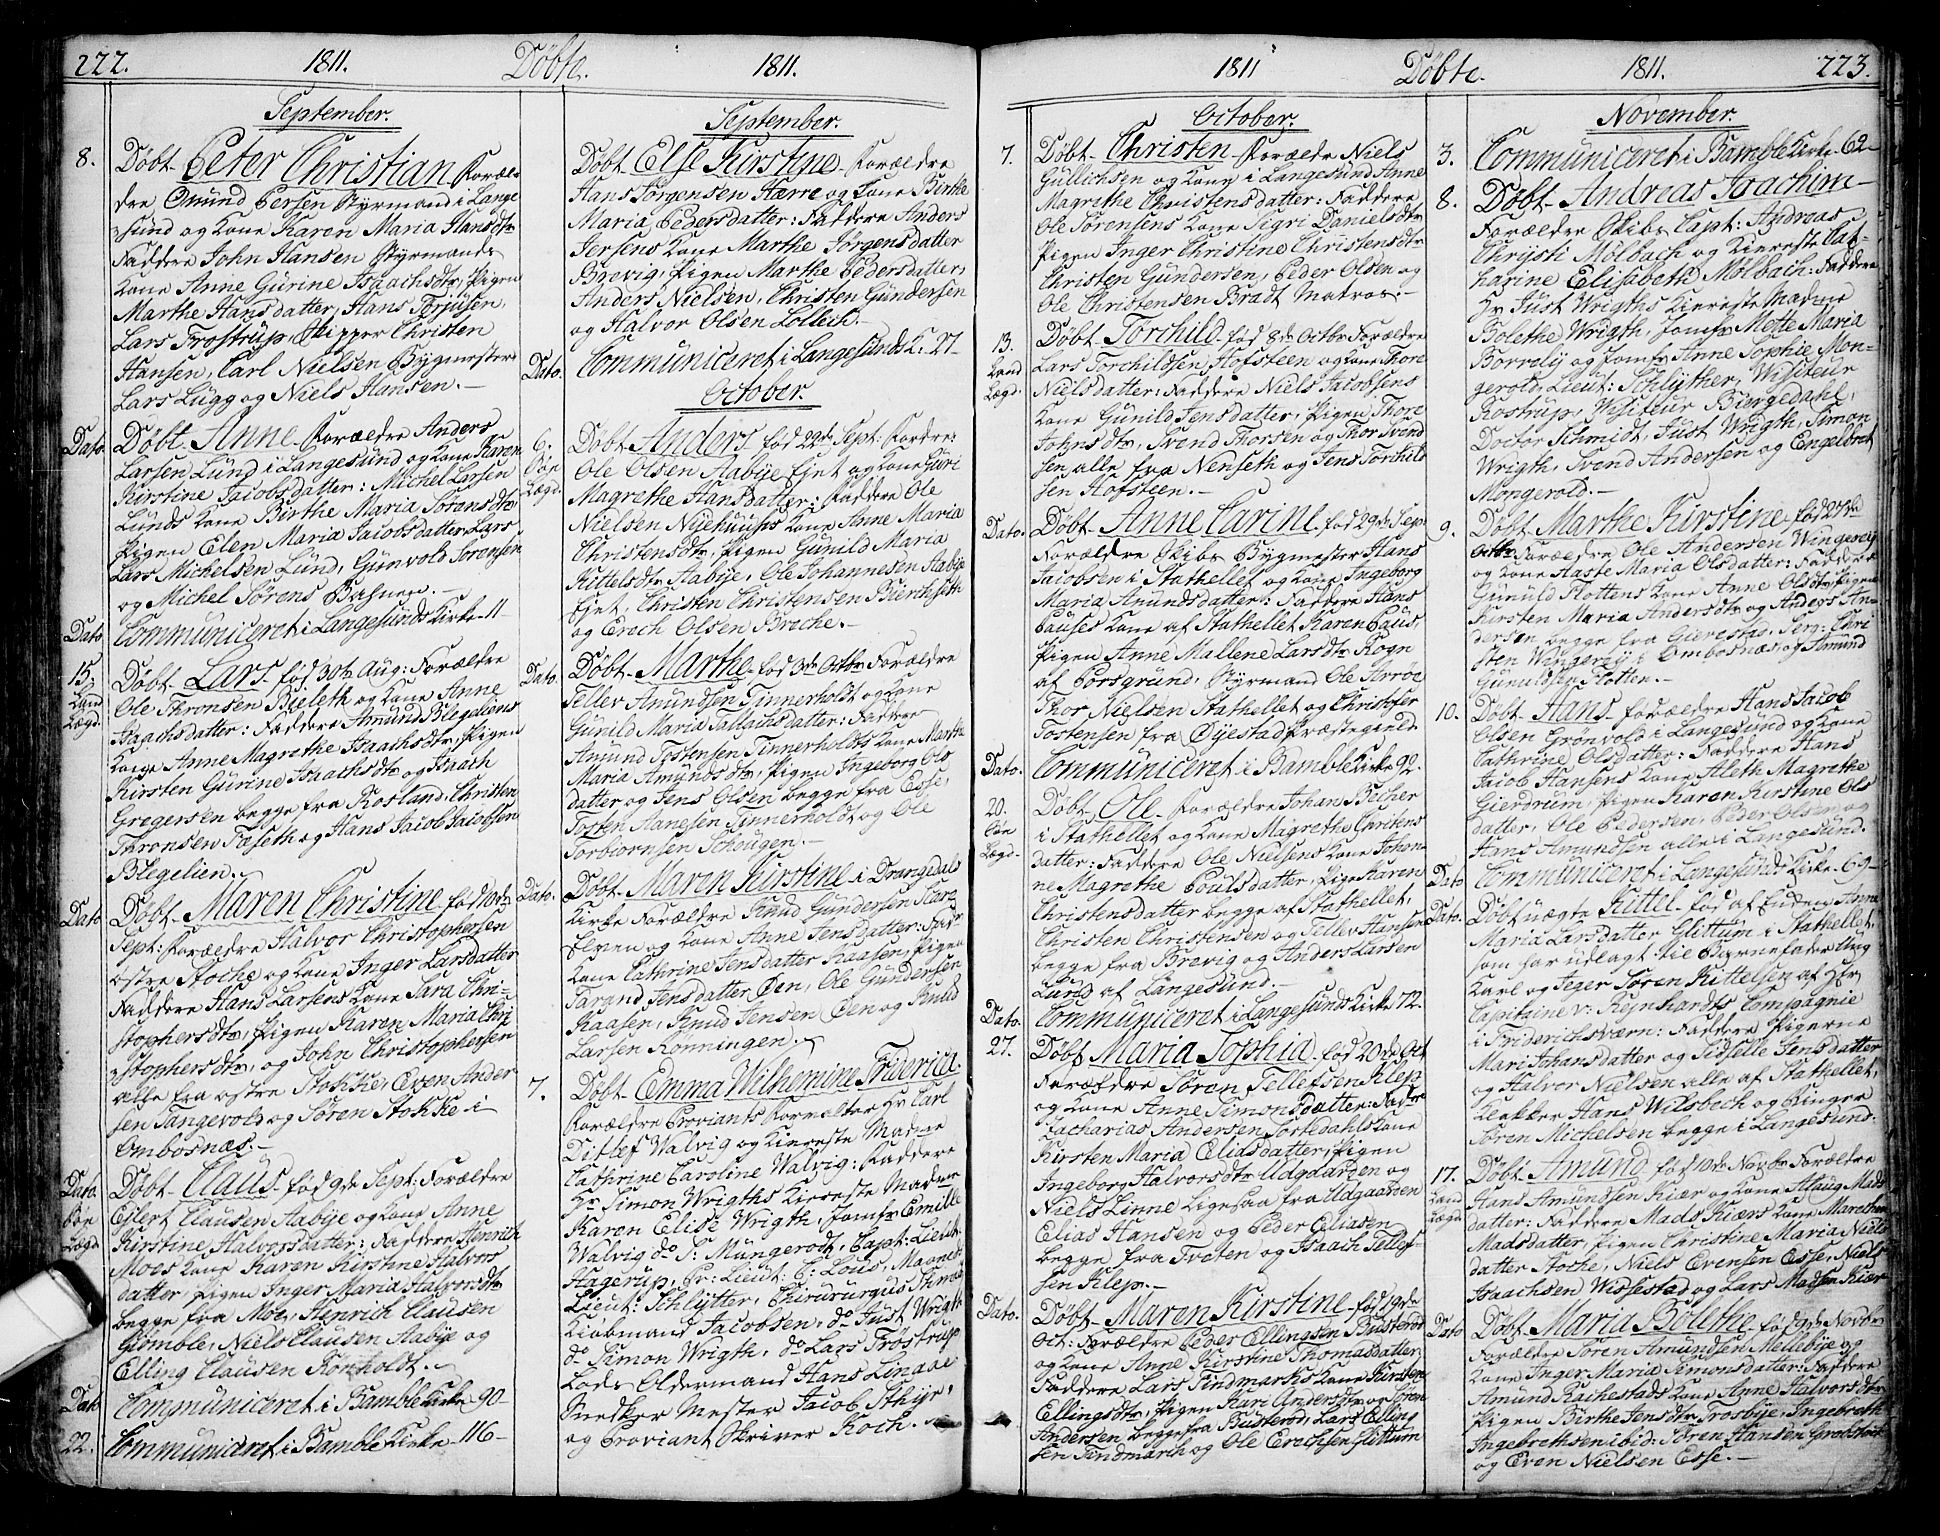 222. 1811. Døbte. 1811.
September.
8. Døbt Peter Christian Foræl-
dre Omund Persen Styrmand i Lange
sund og Kone Karen Maria Hansdtr
Faddere John Hansen Styrmands
Kone Anne Gurine Isaachsdtr, Pigen
Marthe Hansdatter, Hans Torjusen,
Lars Trostrup, Skipper Christen
Hansen, Carl Nielsen Bygmester
Lars Lugg og Niels Hansen.
Dato. Døbt Anne Forældre Anders
Larsen Lund i Langesund og Kone Karen
Kirstine Jacobsdatter: Michel Larsen
Lunds Kone Birthe Maria Sørensdtr
Pigen Elen Maria Jacobsdatter, Lars
Lars Michelsen Lund, Gunvold Sørensen
og Michel Sørens
Dato Communiceret i Langesunds Kirke 11
15. Land Lægd. Døbt Lars fød 30te Aug: Forældre
Ole Thronsen Bieleth og Kone Anne
Isaachsdatter: Faddere Amund Blegeliens
Kone Anne Magrethe Isaachsdtr, Pigen
Kirsten Gurine Isaachsdtr og Isaach
Gregersen begge fra Rosland, Christen
Thronsen Faseth og Hans Jacob Jacobsen
Blegelien.
Dato Døbt Maren Christine fød 10de
Sept: Forældre Halvor Christophersen
østre Stoche og Kone Inger Larsdatter
Faddere Hans Larsens Kone Sara Chri-
stophersdtr, Pigen Karen Maria Chri
stophersdtr, og John Christophersen
alle fra østre Stokke, Even Ander
sen Tangevold og Søren Stokke i
Ombosnæs.
Dato. Søe Lægd Døbt Claus fød 9de Sept: Forældre
Ejlert Clausen Aabye og Kone Anne
Kirstine Halvorsdatter: Faddere Henrich
Moes Kone Karen Kirstine Halvors
datter, Pigen Inger Maria Halvorsdtr
begge fra Moe, Henrich Clausen
Gumble, Niels Clausen Aabye og
Elling Clausen Ronholdt.
Dato Communiceret i Bamble Kirke 90
22. Communiceret i Bamble Kirke 116
September.
Døbt Else Kirstine Forældre
Hans Jørgensen Hærre og Kone Birthe
Maria Pedersdatter: Faddere Anders
Jersens Kone Marthe Jørgensdatter
Brevig, Pigen Marthe Pedersdatter,
Anders Nielsen, Christen Gundersen
og Halvor Olsen Lollich.
Dato. Communiceret i Langesunds K: 27
October.
6. Søe Lægd. Døbt Anders fød 29de Sept: Fordre:
Ole Olsen Aabye Ejet og Kone Guri
Magrethe Hansdatter: Faddere Ole
Nielsen Nyehuuses Kone Anne Maria
Christensdtr, Pigen Gunild Maria
Kittelsdtr Aabye, Ole Johannesen Aabye
Ejet, Christen Christensen Bierchseth
og Erech Olsen Breche.
Dato. Døbt Marthe fød 3de Octbr Forældre
Tellev Amundsen Tinnerholdt og Kone
Gunild Maria Tallachsdatter: Faddere
Amund Tostensen Tinnerholdts Kone Marthe
Maria Amundsdtr, Pigen Ingeborg Ols
datter og Jens Olsen begge fra Esse,
Tosten Aanesen Tinnerholdt og Ole
Torbiørnsen Schougen.
Dato. Døbt Maren Kirstine i Drangedals
Kirke Forældre Knud Gundersen Kars
Elven og Kone Anne Jensdatter: Fadr
Kone Cathrine Jensdatter Kaasen, Pigen
Tarand Jensdatter Øen, Ole Gundersen
Kaasen, Knud Jensen Øen og Knud
Larsen Rønningen.
7. Døbt Emma Wilhemine Friderica.
Forældre Proviants Forvalter Hr Carl
Ditlef Walvig og Kiereste Madme
Cathrine Caroline Walvig: Faddere
Hr Simon Wrigths Kiereste Madme
Karen Elise Wrigth, Jomfr Emilie
Walvig do S: Mungerodt, Capt: Lieut:
Hagerup, Pr: Lieut: C: Lous, Maaneds
Lieut: Schlytter, Chirururgus Schmidt
Kiøbmand Jacobsen, do Just Wrigth
do Simon Wrigth, do Lars Trostrup
Lods Oldermand Hans Linaae
Snedker Mester Jacob Sthye,
og Proviant Skriver Koch.
1811 Døbte. 1811. 223.
October.
7. Døbt Christen Forældre Niels
Gullichsen og Kone i Langesund Anne
Magrethe Christensdatter: Faddere
Ole Sørensens Kone Sigri Danielsdtr
Pigen Inger Christine Christensdtr
Christen Gundersen, Peder Olsen og
Ole Christensen Bradt Matros.
13. Land Lægd. Døbt Torchild fød 8de Octbr Forældre
Lars Torchildsen Hofsteen og Kone Thore
Nielsdatter: Faddere Niels Jacobsens
Kone Gunild Jensdatter, Pigen Thore
Johnsdtr, Svend Thorsen og Thor Svend
sen alle fra Nenseth og Jens Torchild
sen Hofsteen.
Dato. Døbt Anne Carine fød 29de Sep
Forældre Skibs Bygmester Hans
Jacobsen i Stathellet og Kone Ingeborg
Maria Amundsdatter: Faddere Hans
Pauses Kone af Stathellet Karen Paus,
Pigen Anne Mallene Larsdtr Rogn
af Porsgrund, Styrmand Ole Arrøe
Thor Nielsen Stathellet og Christofer
Tostensen fra Øyestad Præstegield.
Dato. Communiceret i Bamble Kirke 92.
20. Søe Lægd. Døbt Ole Forældre Johan Becher
i Stathellet og Kone Magrethe Christens
datter: Faddere Ole Nielsens Kone Johan-
ne Magrethe Poulsdatter, Pige Karen
Christensdatter begge af Stathellet,
Christen Christensen og Tellev Hansen
begge fra Brevig og Anders Larsen
Lund af Langesund.
Dato. Communiceret i Langesunds Kirke 72.
27. Døbt Maria Sophia fød 20de Oct
Forældre Søren Tellefsen Klep
og Kone Anne Simonsdatter: Faddr
Zacharias Andersen Sortedahls Kone
Kirsten Maria Eliasdatter, Pigen
Ingeborg Halvorsdtr Udgaarden og
Niels Linne Ligesaa fra Udgaarden
Elias Hansen og Peder Eliasen
begge fra Tveten og Isaach Tellef-
sen Klep.
Dato. Døbt Maren Kirstine fød 19de
Oct: Forældre Peder Ellingsen Busterod
og Kone Anne Kirstine Thomasdatter
Faddere Lars Findmarks Kone Kirsten
Ellingsdtr, Pigen Kari Andersdtr og Søren
Andersen begge fra Busterød, Lars Elling
sen Findmarch og Ole Erechsen Glittum
November.
3. Communiceret i Bamble Kirke 62
8. Døbt Andreas Joachim
Forældre Skibs Capt: Andreas
Chrijsti Mølbach og Kiereste Cat-
harine Elisabeth Mølbach: Faddere
Hr Just Wrigths Kiereste Madme
Bolethe Wrigth, Jomfr Mette Maria
Borrely og Jomfr Anne Sophie Mon-
gerold, Lieut: Schlyther, Wisiteur
Rostrup, Wisiteur Biergedahl,
Doctor Schmidt, Just Wrigth, Simon
Wrigth, Svend Andersen og Engelbret
Mongerold.
9. Døbt Marthe Kirstine fød 27de
Octbr Forældre Ole Andersen Wingerej
og Kone Aaste Maria Olsdatter: Faddere
Gunuld Flottens Kone Anne Olsdtr, Pigen
Kirsten Maria Andersdtr og Anders An-
dersen begge fra Gierestad, Serg: Chri
sten Wingerej i Ombosnæs og Amund
Gunuldsen Flotten.
10. Døbt Hans Forældre Hans Jacob
Olsen Grønvold i Langesund og Kone
Cathrine Olsdatter: Faddere Hans
Jacob Hansens Kone Aleth Magrethe
Gierdrum, Pigen Karen Kirstine Ols
datter, Ole Pedersen, Peder Olsen og
Hans Amundsen alle i Langesund.
Dato Communiceret i Langesunds Kirke 69
Dato. Døbt uægte Kittel fød af Enden Anna
Maria Larsdatter Glittum i Stathellet,
som har udlagt til Barnefader Ung
Karl og Jeger Søren Kittelsen af Hr
Capitaine v: Rejnhardts Compagnie
i Friderichsværn: Faddere Pigerne
Mari Johansdatter og Sidselle Jensdatter
og Halvor Nielsen alle af Stathellet,
Klokker Hans Wilsbech og Ringer
Søren Michelsen begge i Langesund.
17. Land Lægd Døbt Amund fød 10de Novbr Forældre
Hans Amundsen Kiær og Kone Aslaug Mads
datter: Faddere Mads Kiærs Kone Marethe
Madsdatter, Pigen Christine Maria Niels
datter Stoke, Niels Evensen Esse, Niels
Isaachsen Wissestad og Lars Madsen Kiær
Dato Døbt Maria Bolethe fød 9de Novbr
Forældre Søren Amundsen Mellebye og
Kone Inger Maria Simonsdatter: Faddere
Amund Rachestads Kone Anne Halvorsdtr
Pigen Birthe Jensdtr Trosbye, Ingebreth
Ingebrethsen ibid: Søren Hansen Grobstok
og Even Nielsen Esse.